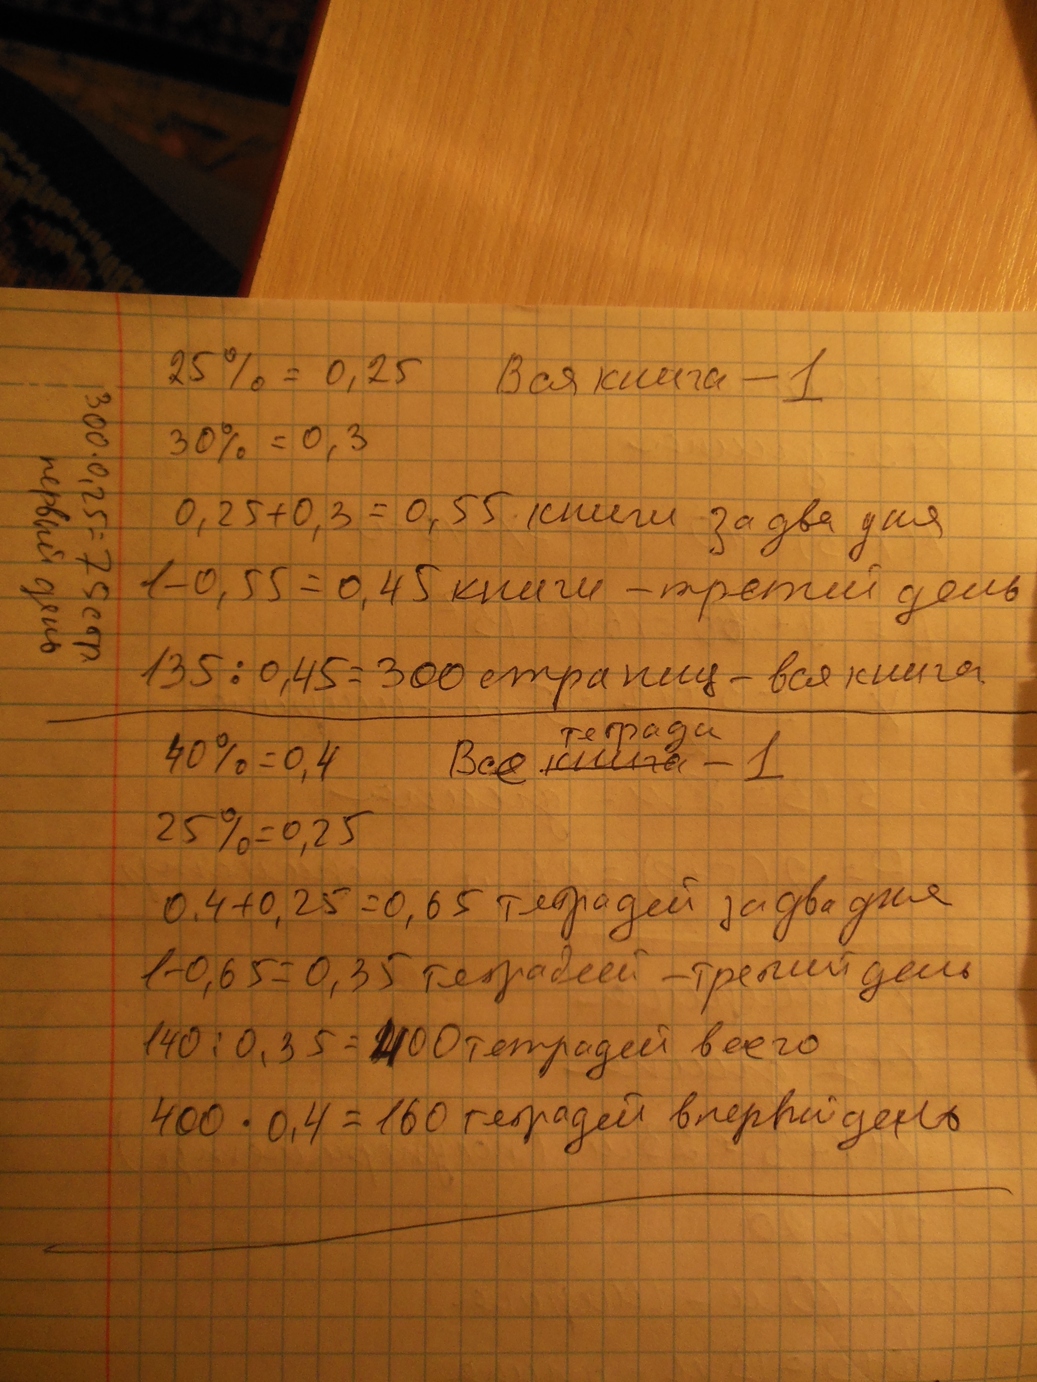 25% = 0,25 Вся книга - 1
30% = 0,3
0,25+0,3=0,55 книги за два дня
1-0,55=0,45 книги - третий день
135:0,45=300 страниц - вся книга
300·0,25=75 стр
первый день
40%=0,4 Все книга тетради - 1
25%=0,25
0.4+0,25=0,65 тетрадей за два дня
1-0,65=0,35 тетрадей - третий день
140:0,35=400 тетрадей всего
400·0,4=160 тетрадей в первый день